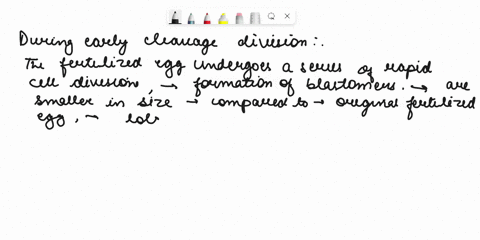 During early cleavage division :.
The fertilized egg undergoes a series of rapid
cell division, → formation of blastomers. → are
smaller in size → compared to → original fertilized
egg, →